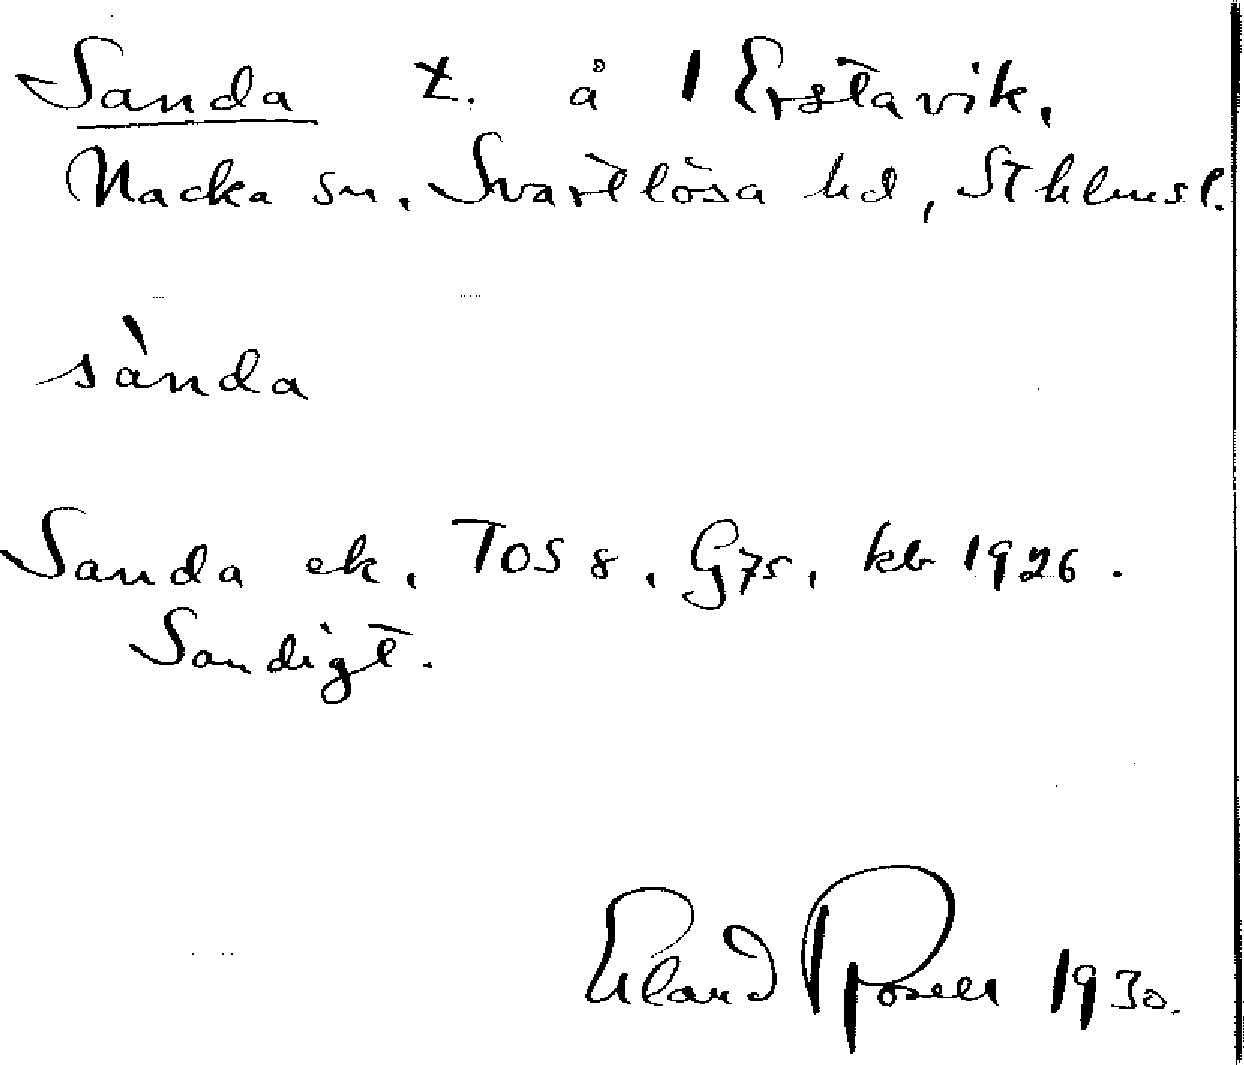 Sanda t. å 1 Erstavik,
Nacka sn, Svartlösa hd, Sthlmsl.
sànda
Sanda ek, TOS 8, G75, kb 1926.
Sandigt.
Erland Rosell 1930.